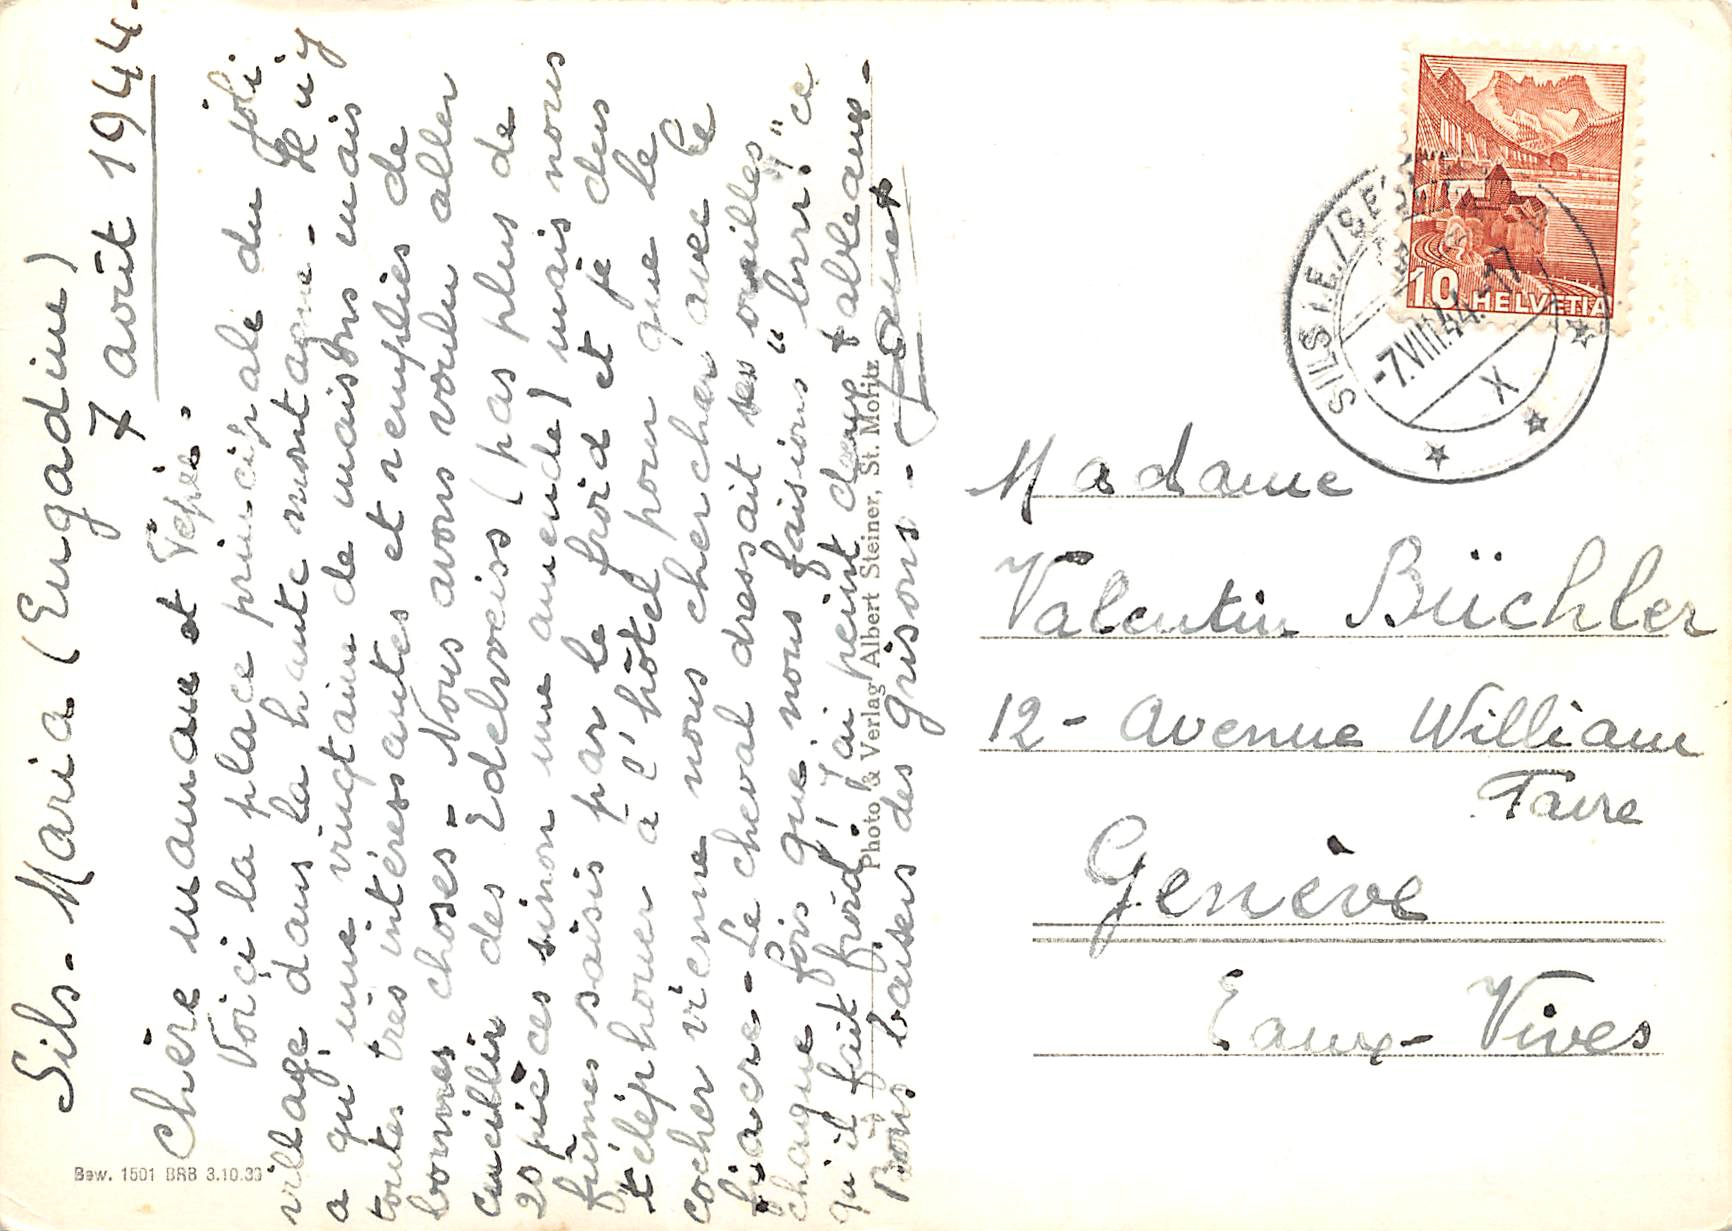 Sils-Maria (Engadine)
7 août 1944.
Chère maman et Pépé.
Voiçi la place principale du joli
village dans la haute montagne - Il n'y
a qu'une vingtaine de maisons mais
toutes très intéressantes et remplies de
bonnes choses - Nous avons voulu aller
cueillir des Edelweiss (pas plus de
20 pièces sinon une amende) mais nous
fûmes saisis par le froid et je dus
téléphoner à l'hôtel pour que le
cocher vienne nous chercher avec le
fiacre - Le cheval dressait ses oreilles
chaque fois que nous faisions "brrr!" ce
qu'il fait froid! J'ai peint deux tableaux -
Bons baisers des grisons -
Photo & Verlag Albert Steiner, St. Moritz
Bew. 1501 BRB 3.10.39
10 HELVETIA
SILS I.E./SEGL
-7.VIII.44.-17
X
Madame
Valentin Büchler
12 - Avenue William
Favre
Genève
Eaux-Vives